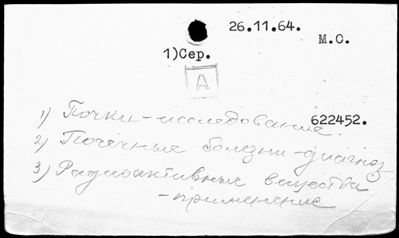 26.11.64.
М.О.
1)Сер.
А
622452.
1) Почки-исследование
2) Почечные болезни-диагноз
3) Радиоактивные вещества
-применение